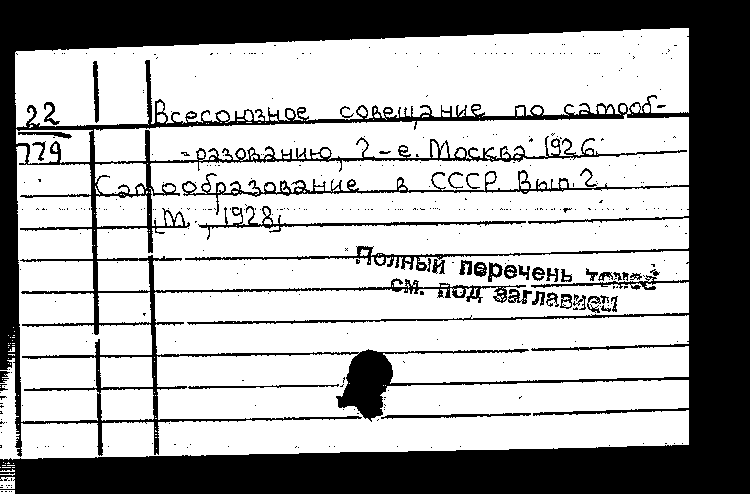 22
779
Всесоюзное совещание по самооб-
-разованию, 2-е. Москва 1926.
Самообразование в СССР. Вып. 2.
[М., 1928].
Полный перечень томов
см. под заглавием